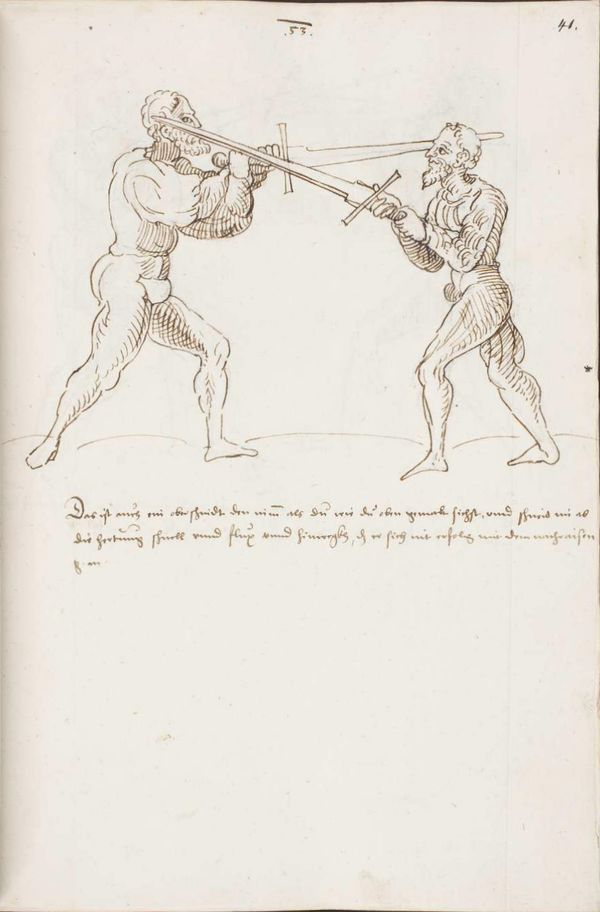 .53.
41.
Das ist auch ein ober schnidt den nim als du wie du oben gemalt sichst, unnd schneid im ab
die schnell unnd flux unnd hinwegkh, dz er sich nit erholg mit dem nachraisen